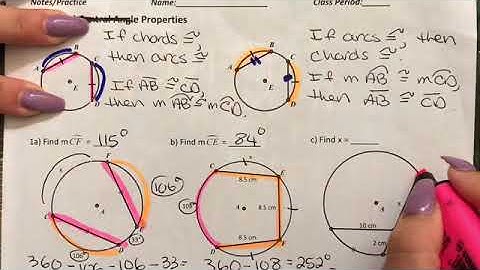 Notes/Practice Name: Class Period:
Central Angle Properties
If chords ≅,
then arcs ≅
If arcs ≅ then
chords ≅.
If AB ≅ CD,
then m AB ≅ m CD.
If m AB ≅ m CD,
AB ≅ CD.
A B C D E
A B C D E
1a) Find m CF = 115°
b) Find m CE = 84°
c) Find x =
106°
33°
106°
A
F
D
108°
8.5 cm
8.5 cm
8.5 cm
A
E
A
x
10 cm
2 cm
360-106-106-33=
360-108=252°